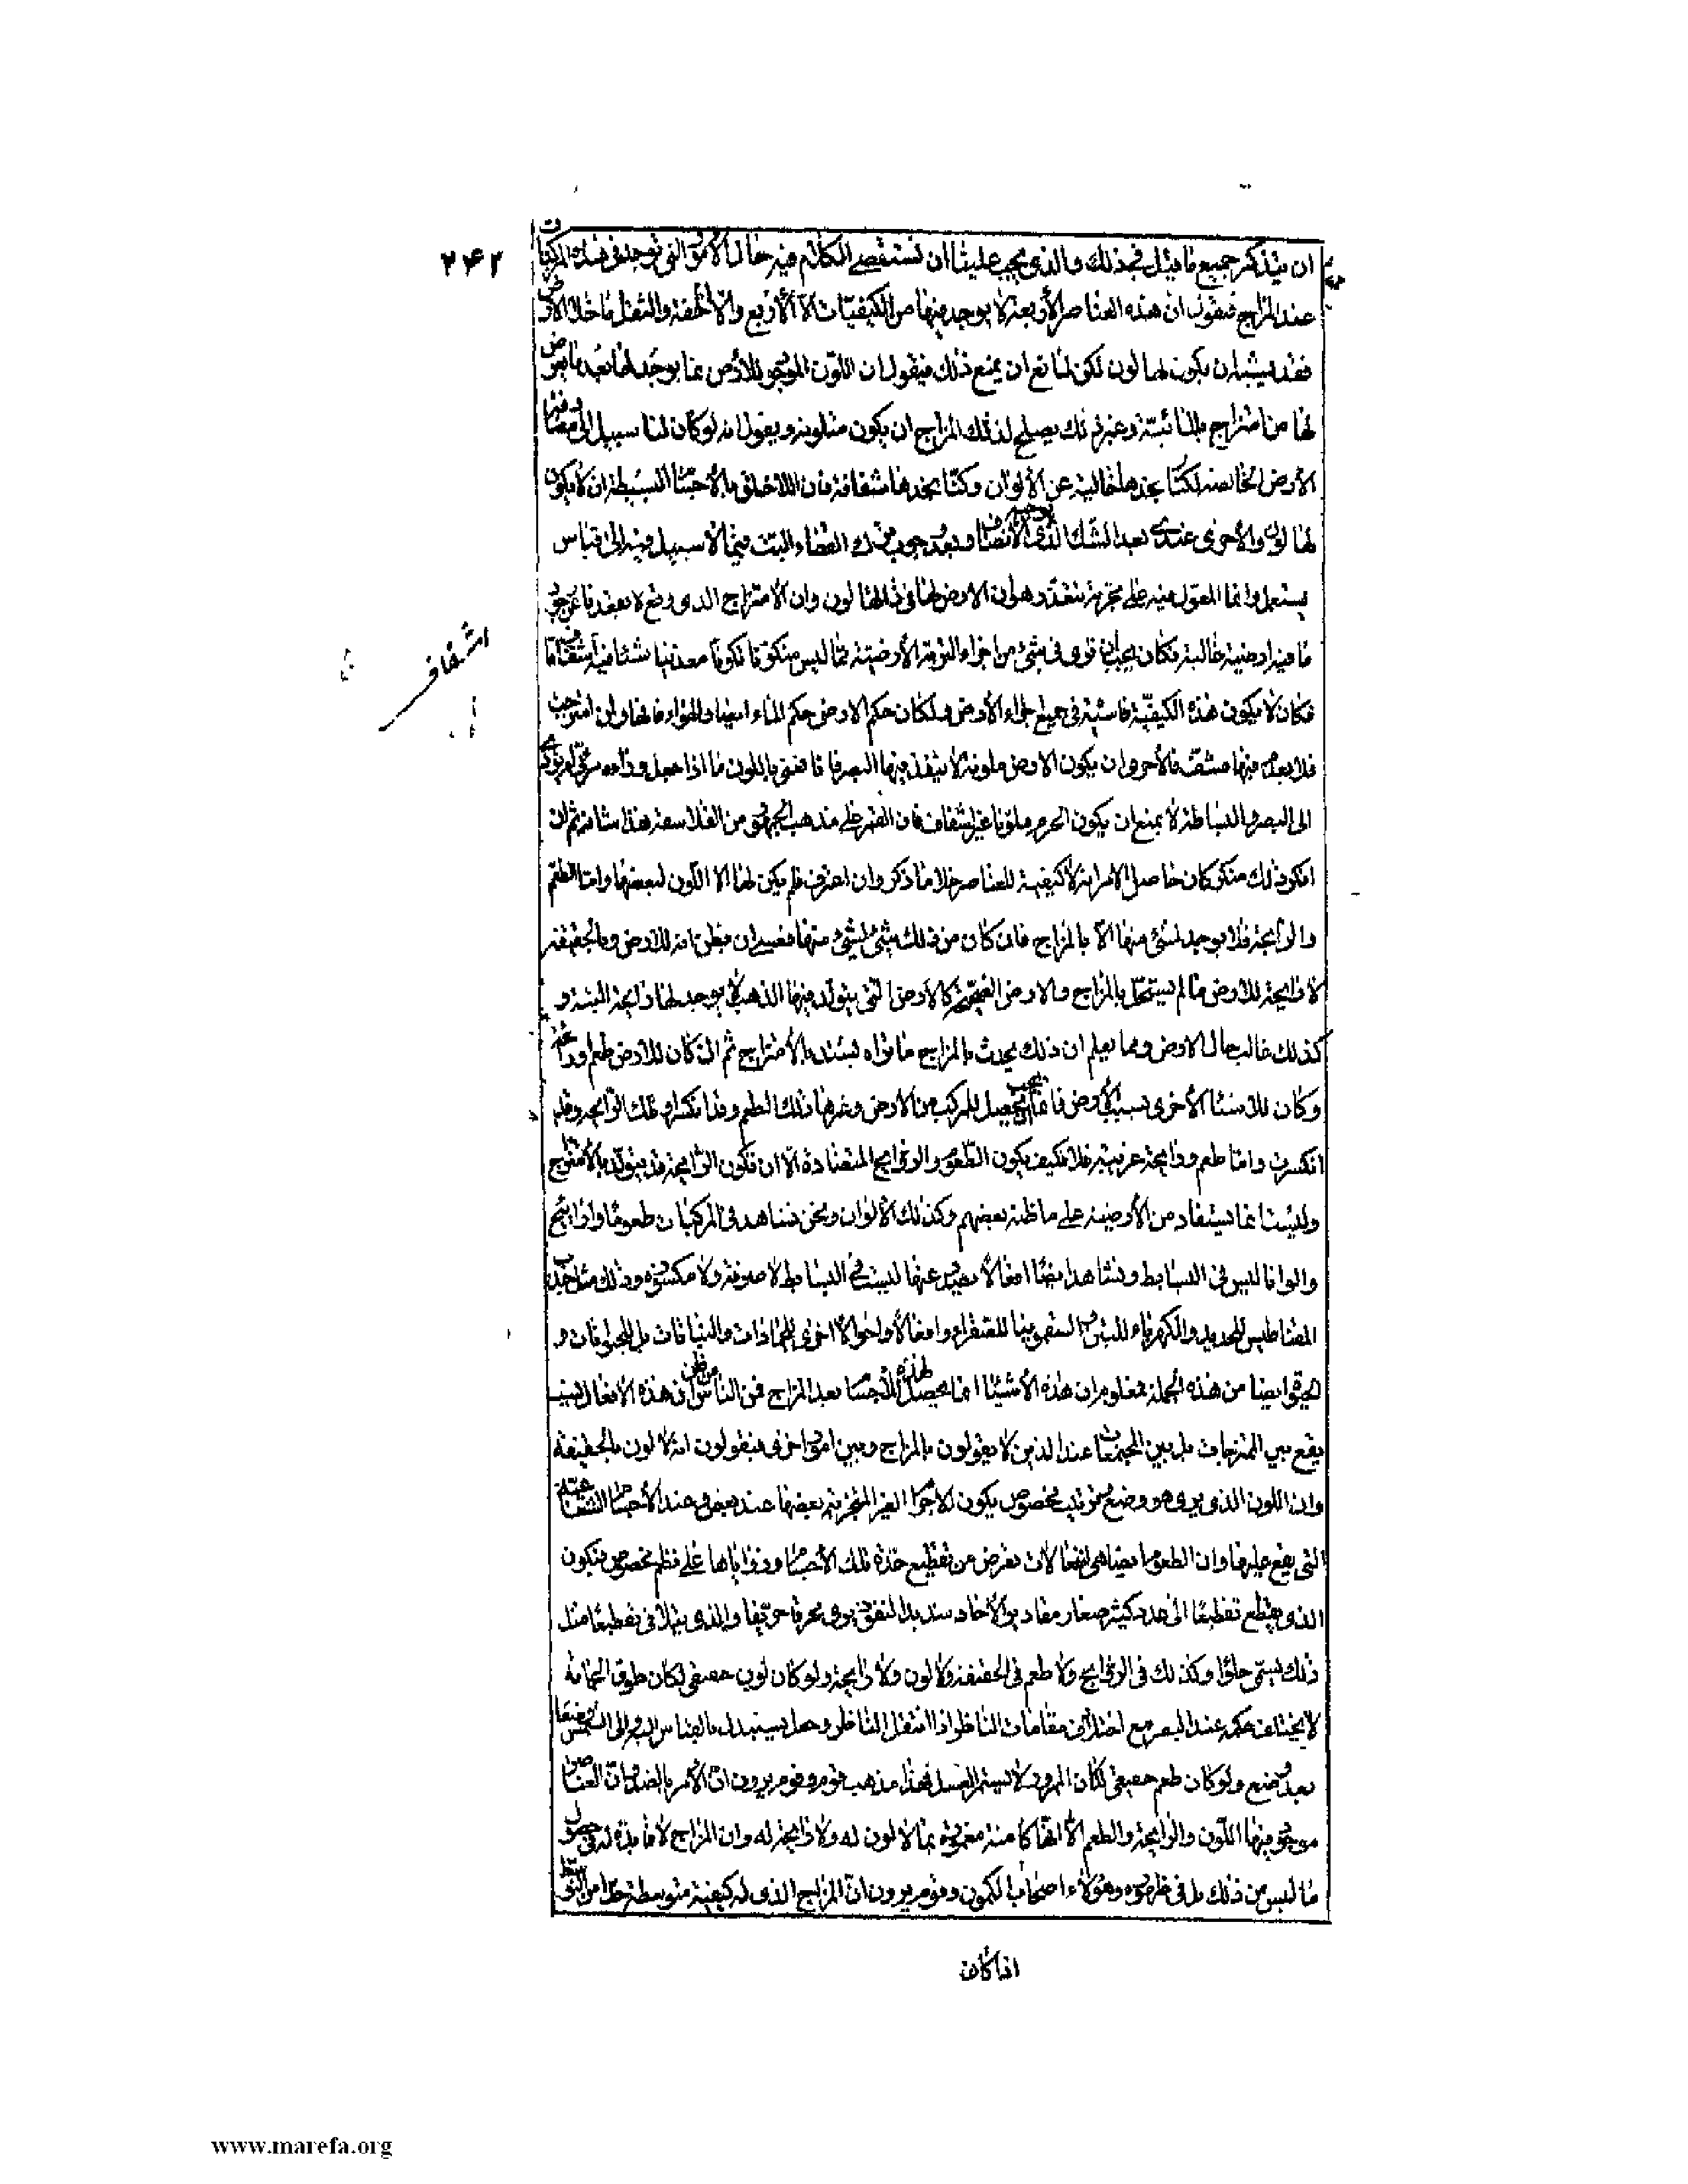 ٢٤٢
ان يتذكر جميع ما قيل فى ذلك والذى يجب علينا ان نستقصى الكلام فيه حال الأمور التى توجد فى هذه المركبات
عند المزاج فنقول ان هذه العناصر الأربعة لا يوجد فيها من الكيفيّات الّا الأربع والّا الخفة والثقل ما خلا الارض
فقد يشبه ان يكون لها لون لكن لمانع ان يمنع ذلك فيقول ان اللون الموجود للأرض انما يوجد لها بعد ما يعرض
لها من امتزاج بالمائيّة وغير ذلك يصلح لذلك المزاج ان يكون متلونة ويقول انه لو كان لنا سبيل الى مصادفة
الأرض الخالصة لكنّا نجدها خالية عن الألوان وكنّا نجدها شفافة فان الاخلق بالأجسام البسيطة ان لا يكون
لها لون والأحرى عندى بعد الشك الذى يوجبه الأنصاف وبعد وجوب ترك القضاء البت فيما لا سبيل فيه الى قياس
يستعمل وانما المعوّل فيه على تجربة تتعذر هو ان الارض لها فى ذاتها لون وان الامتزاج الذى وقع لا يعقدنا عن وجود
ما فيه ارضية غالبة فكان يجب ان نرى فى شئ من اجزاء التربة الأرضية مما ليس متكونا تكونا معدنيا شيئا فيه اشفاف ما
اشفاف
فكان لا يكون هذه الكيفيّة فاشية فى جميع اجزاء الأرض ولكان حكم الارض حكم الماء ايضا والهواء فانها وان امتزجت
فلا يعدم فيها مشف فالأحرى ان يكون الارض ملونة لا ينفذ فيها البصر فانا نعنى باللون ما اذا جعل وراءه مرئى لم يؤد
الى البصر والبساطة لا يمنع ان يكون الجرم ملونا غير شفاف فان القمر على مذهب الجمهور من الفلاسفة هذا شانه ثم ان
انكر ذلك منكر كان حاصل الامر انه لا كيفية للعناصر خلا ما ذكر وان اعترف فلم يكن لها الا اللون لبعضها وامّا الطعم
والرائحة فلا يوجد لشئ منها الّا بالمزاج فان كان من ذلك شئ لشئ منها فعسى ان يظن انه للارض وبالحقيقة
لا رائحة للارض ما لم يستحل بالمزاج والارض كالأرض التى يتولد فيها الذهب لا يوجد لها رائحة البتة و
كذلك غالب حال الارض ومما يعلم ان ذلك يحدث بالمزاج ما نراه يشتد بالأمتزاج ثم ان كان للارض طعم ورائحة
وكان للأشياء الأخرى بسبب الأرض فانما يجب ان يحصل للمركب من الارض وغيرها ذلك الطعم وقد انكسر او تلك الرائحة وقد
انكسرت وامّا طعم ورائحة غريبة فلا فكيف يكون الطعوم والروائح المتضادة الّا ان تكون الرائحة قد يتولد بالأمتزاج
وليست انما يستفاد من الأرضية على ما ظنه بعضهم وكذلك الألوان ونحن نشاهد فى المركبات طعوما وروائح
والوانا ليس فى البسائط ونشاهد ايضا افعالا يصدر عنها ليست فى البسائط لا صرفة ولا مكسورة وذلك مثل جذب
المغناطيس للحديد والكهرباء للتبن والسقمونيا للصفراء وافعالا واحوالا اخرى للجمادات والنباتات بل للحيوانات و
الحيوة ايضا من هذه الجملة فمعلوم ان هذه الأشياء انما يحصل لهذه الأجسام بعد المزاج فمن الناس من ظن ان هذه الأفعال نسب
يقع بين الممتزجات بل بين المجتمعات عند الذين لا يقولون بالمزاج وبين امور اخرى فيقولون انه لا لون بالحقيقة
وان اللون الذى يرى هو وضع وترتيب مخصوص يكون للاجرام الغير المتجزية بعضها عند بعض وعند الأجسام الشعاعيّة
التى يقع عليها وان الطعوم ايضا هى انفعالات تعرض من تقطيع حدّة تلك الأجسام وزواياها على نظم مخصوص فيكون
الذى يقطع تقطيعا الى عدد كثير صغار مقادير الآحاد شديد النفوذ يرى محرقا حريفا والذى يتلافى تقطيعا مثل
ذلك يسمى حلوا وكذلك فى الروائح ولا طعم فى الحقيقة ولا لون ولا رائحة ولو كان لون حقيقى لكان طوق الحمامة
لا يختلف حكمه عند البصر مع اختلاف مقامات الناظر اذا انتقل الناظر وهل يستبدل بالقياس اليه والى الشمس وضعا
بعد وضع ولو كان طعم حقيقى لكان الممرور لا يستمر العسل فهذا مذهب قوم وقوم يرون انّ الأمر بالضد وانّ العناصر
موجود فيها اللون والرائحة والطعم الّا انها كامنة مغمورة بما لا لون له ولا رائحة له وان المزاج لا فائدة له فى حصول
ما ليس من ذلك بل فى ظهوره وهؤلاء اصحاب الكمون وقوم يرون انّ المزاج الذى له كيفية متوسطة حدّا من التوسط
اذا كان
www.marefa.org